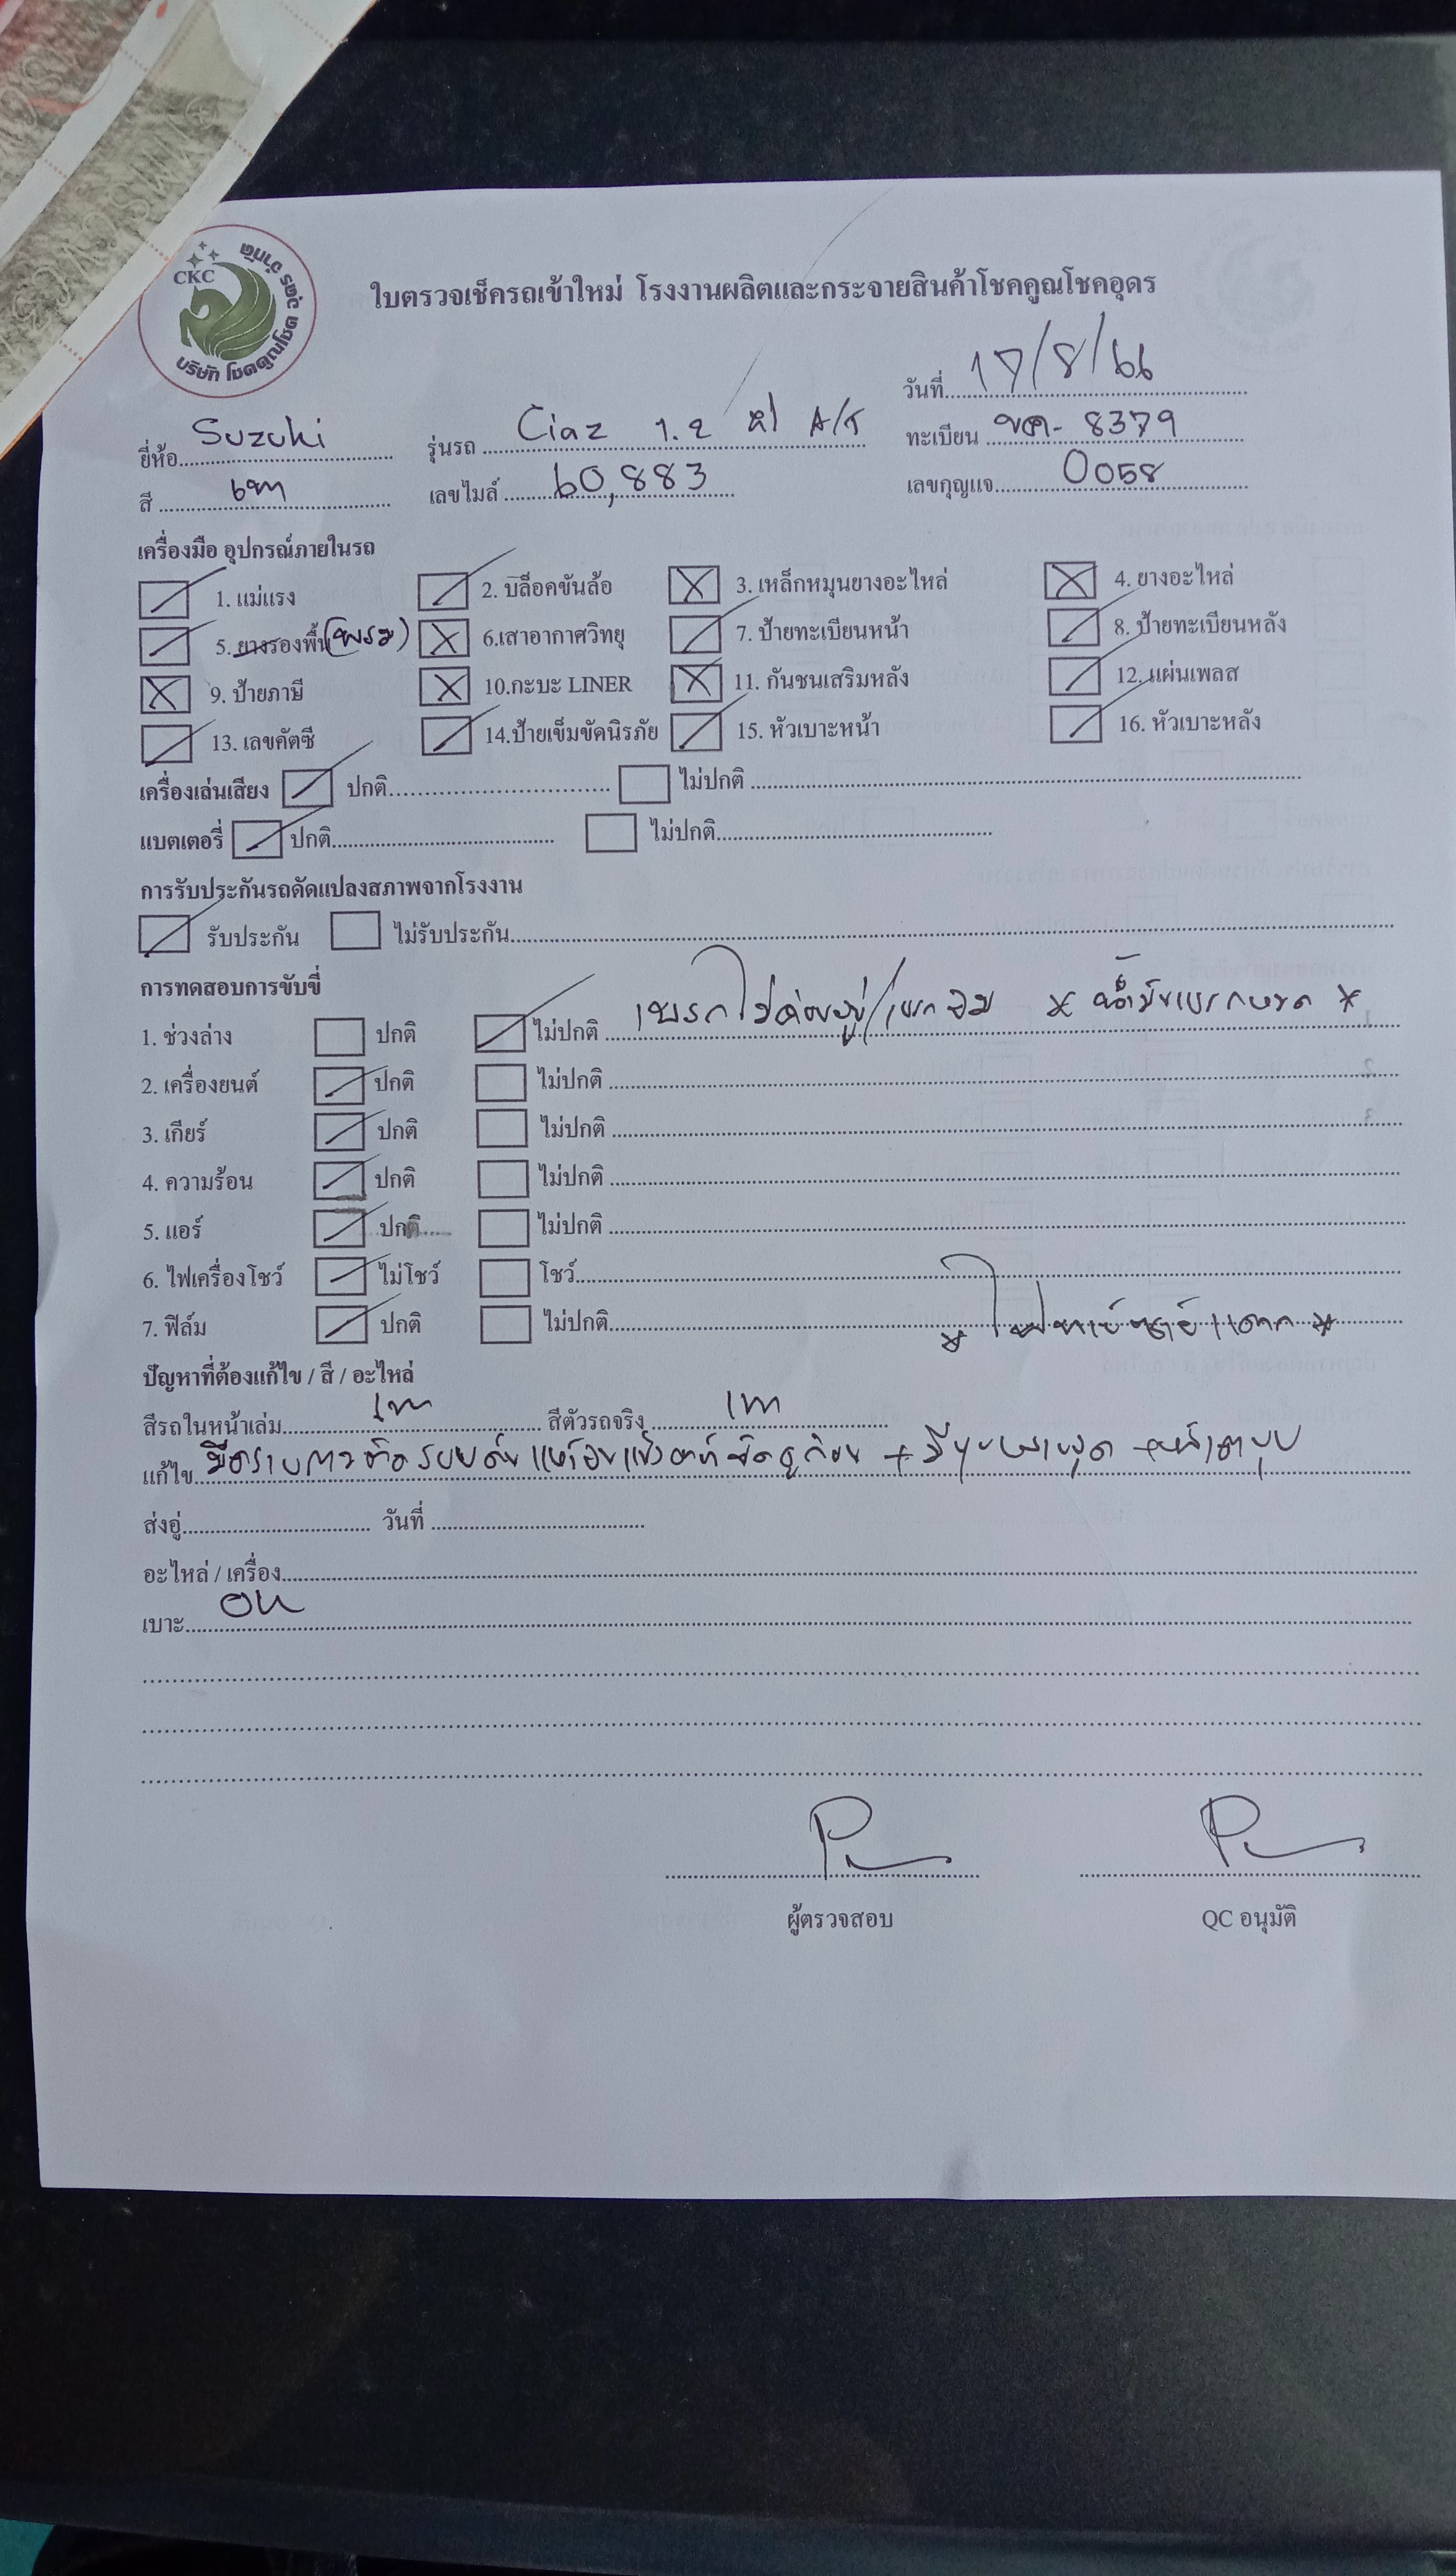 CKC
บริษัท โชคคูณโชค อุดร จำกัด
ใบตรวจเช็ครถเข้าใหม่ โรงงานผลิตและกระจายสินค้าโชคคูณโชคอุดร
วันที่ 17/8/66
ยี่ห้อ Suzuki รุ่นรถ Ciaz 1.2 A/T ทะเบียน 8379
สี เทา เลขไมล์ 60,883 เลขกุญแจ 0058
เครื่องมือ อุปกรณ์ภายในรถ
1. แม่แรง 2. บล็อคขันล้อ 3. เหล็กหมุนยางอะไหล่ 4. ยางอะไหล่
5. ยางรองพื้น (พรม) 6.เสาอากาศวิทยุ 7. ป้ายทะเบียนหน้า 8. ป้ายทะเบียนหลัง
9. ป้ายภาษี 10.กะบะ LINER 11. กันชนเสริมหลัง 12. แผ่นเพลส
13. เลขคัตซี 14.ป้ายเข็มขัดนิรภัย 15. หัวเบาะหน้า 16. หัวเบาะหลัง
เครื่องเล่นเสียง ปกติ ไม่ปกติ
แบตเตอรี่ ปกติ ไม่ปกติ
การรับประกันรถดัดแปลงสภาพจากโรงงาน
รับประกัน ไม่รับประกัน
การทดสอบการขับขี่
1. ช่วงล่าง ปกติ ไม่ปกติ เบรกไม่ค่อยอยู่/เบรกจม * น้ำมันเบรกหมด *
2. เครื่องยนต์ ปกติ ไม่ปกติ
3. เกียร์ ปกติ ไม่ปกติ
4. ความร้อน ปกติ ไม่ปกติ
5. แอร์ ปกติ ไม่ปกติ
6. ไฟเครื่องโชว์ ไม่โชว์ โชว์
7. ฟิล์ม ปกติ ไม่ปกติ * ไฟท้ายซ้ายแตก *
ปัญหาที่ต้องแก้ไข / สี / อะไหล่
สีรถในหน้าเล่ม เทา สีตัวรถจริง เทา
แก้ไข มีคราบกาวติดรอบคัน
ส่งอู่ วันที่
อะไหล่ / เครื่อง
เบาะ OK
ผู้ตรวจสอบ QC อนุมัติ